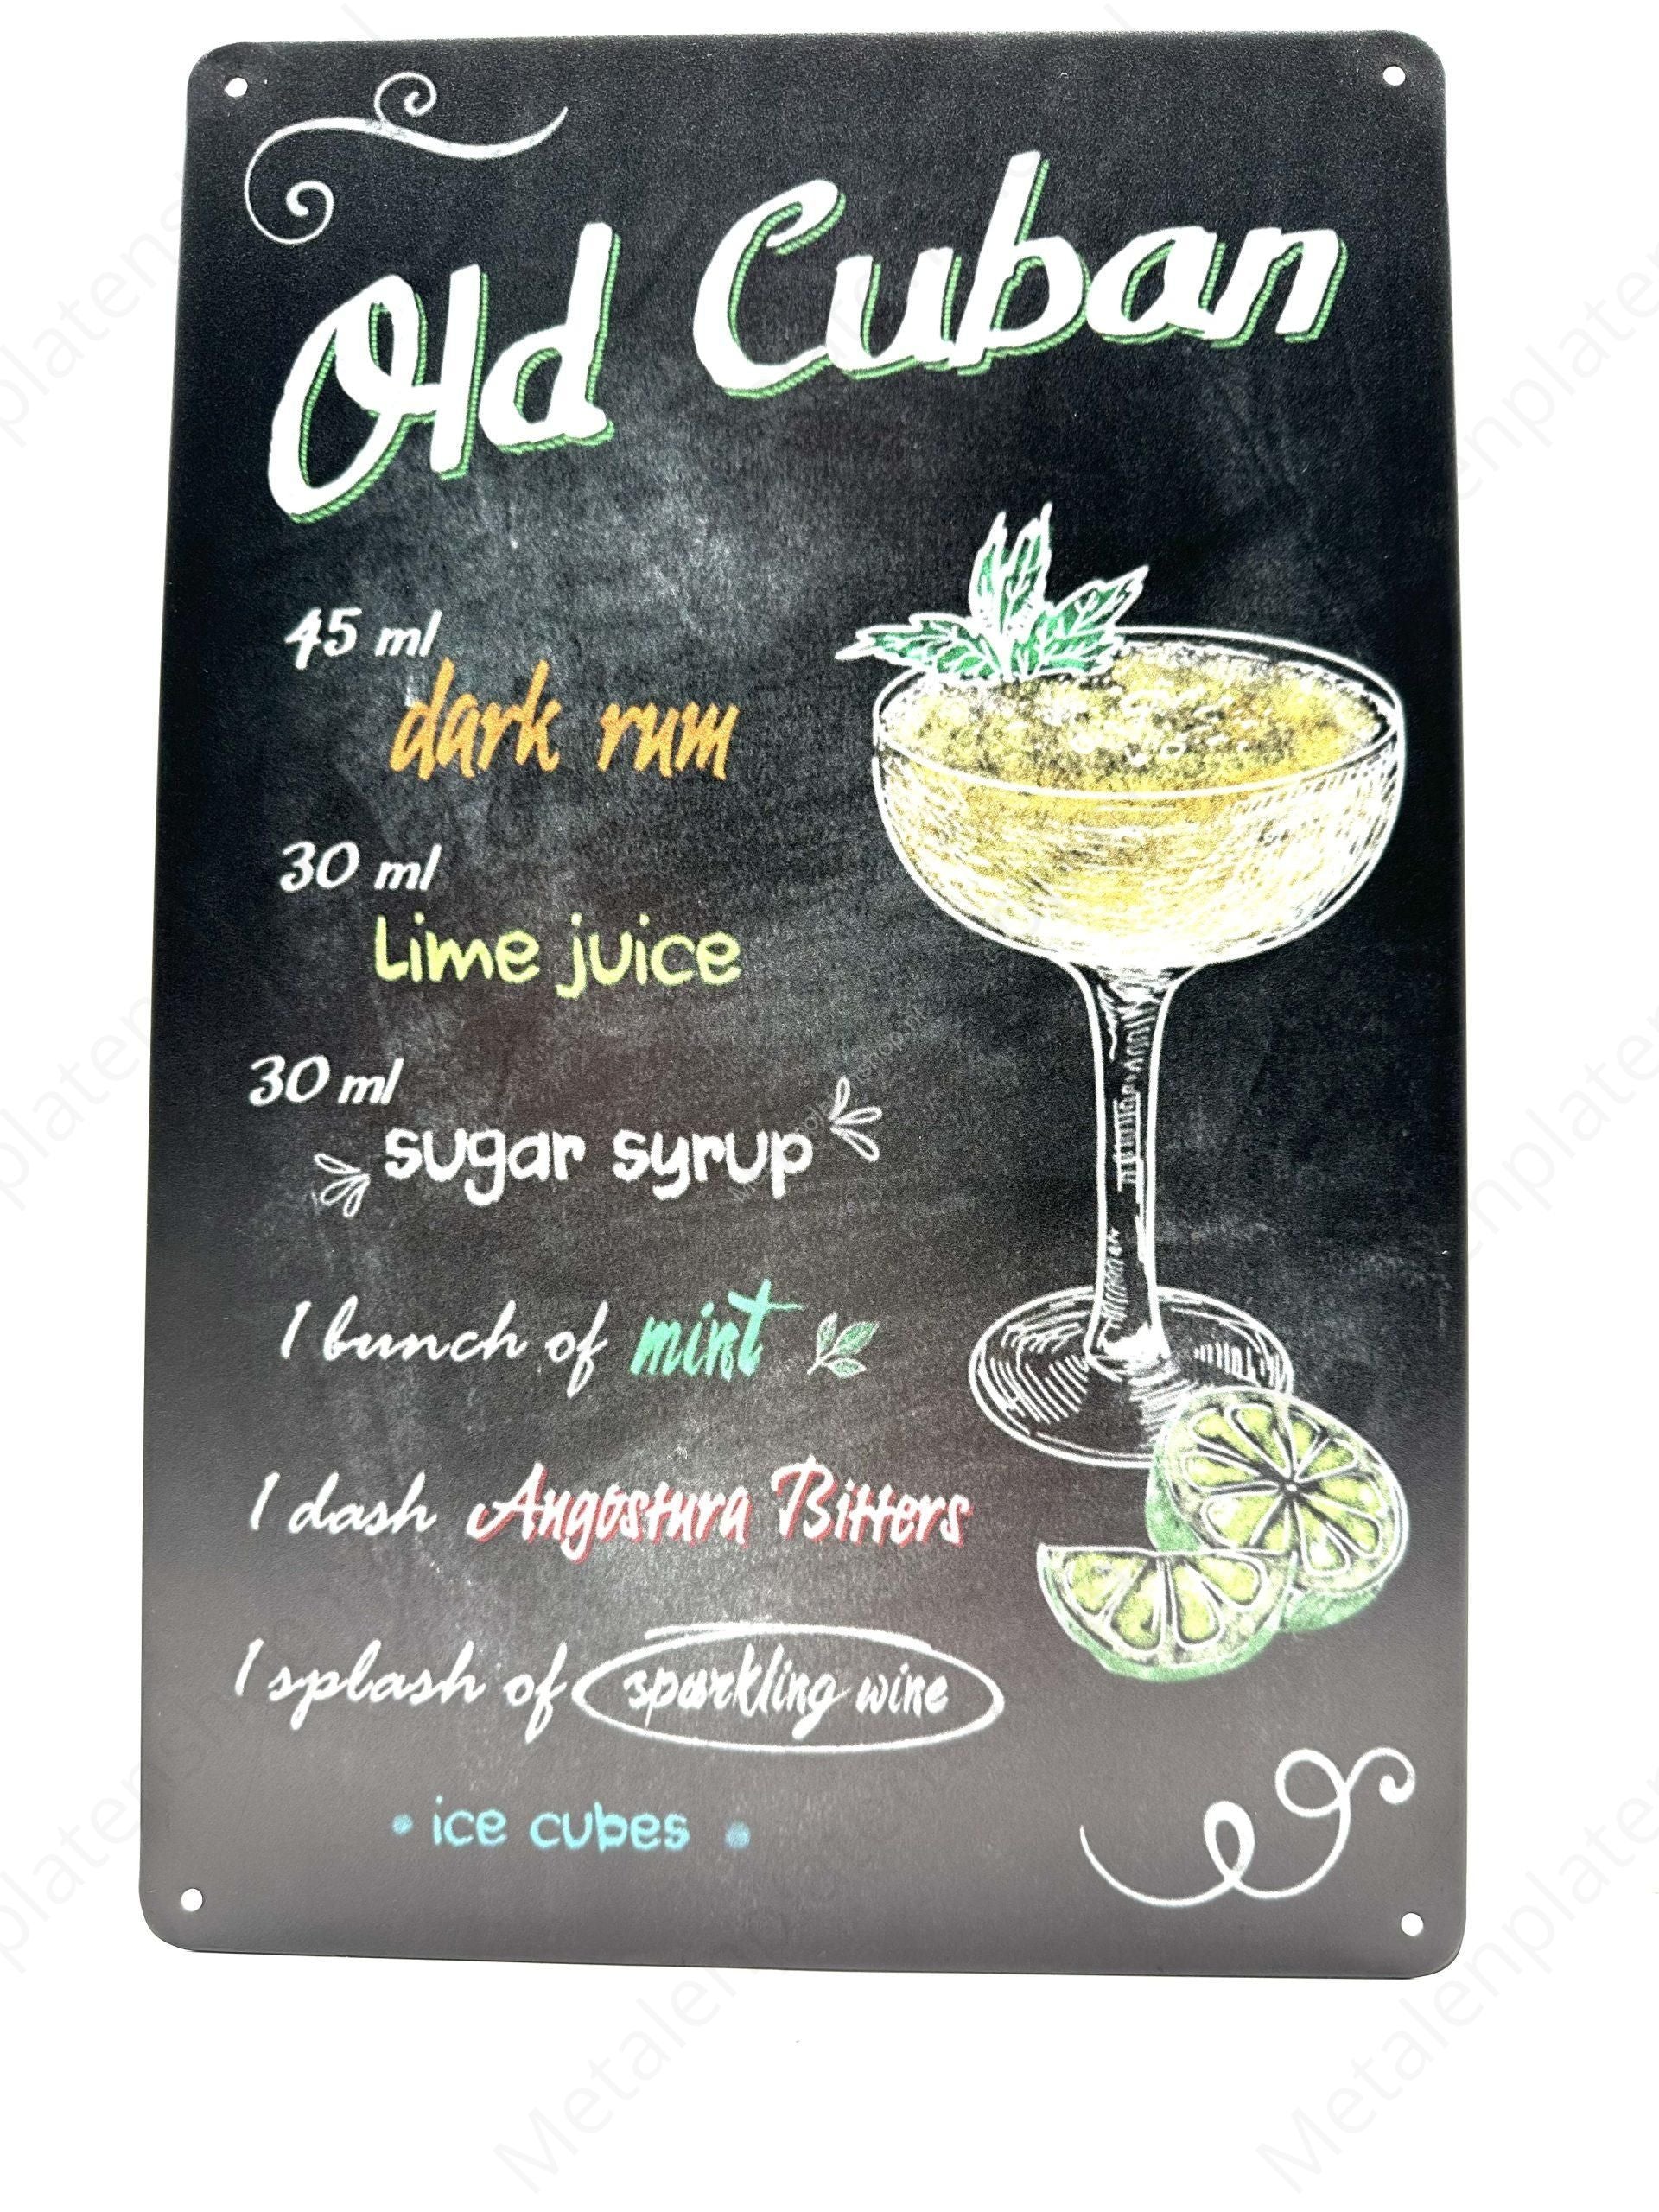 Old Cuban
45 ml
dark rum
30 ml
Lime juice
30 ml
sugar syrup
1 bunch of mint
1 dash Angostura Bitters
1 splash of sparkling wine
• ice cubes •
Metalenplaten
Metalenplaten